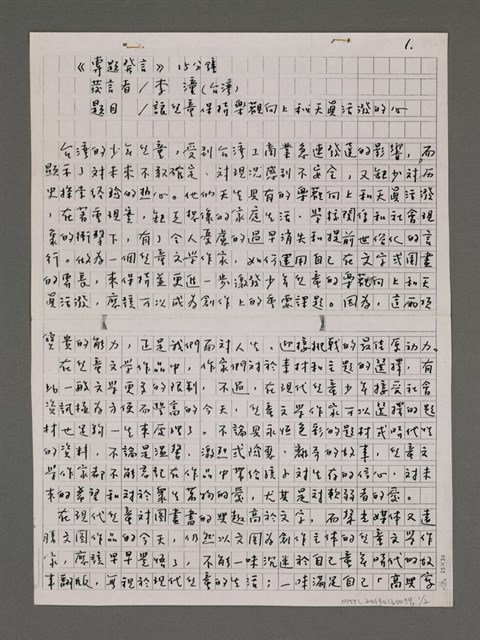 1.
《專題發言》 15分鐘
發言者/李潼(台灣)
題目 /讓兒童保持樂觀向上和天真活潑的心
台灣的少年兒童,受到台灣工商業急速發達的影響,而
顯示了對未來不敢確定、對現況感到不安全,又缺少對歷
史探索經驗的熱心。他們天生具有的樂觀向上和天真活潑
,在著重現實,缺乏
的家庭生活、學校關係和社會現
象的衝擊下,有了令人憂慮的過早消失和提前世俗化的言
行。做為一個兒童文學作家,如何運用自己在文字或圖畫
的專長,來保持並更進一步激發少年兒童的樂觀向上和天
真活潑,應該可以成為創作上的重要課題。因為,這兩項
寶貴的能力,正是我們面對人生、迎接挑戰的最佳原動力。
在兒童文學作品中,作家們對於素材和主題的選擇,有
比一般文學更多的限制,不過,在現代兒童少年接受社會
資訊極為方便而豐富的今天,兒童文學作家可以選擇的題
材也足夠一生來處理了。不論具永恆色彩的題材或時代性
的資料,不論是溫馨、激烈或
、離奇的故事,兒童文
學作家都不能忘記在作品中帶給孩子對生存的信心、對未
來的希望和對於眾生萬物的愛,尤其是對軟弱者的愛。
在現代兒童對圖畫書的興趣高於文字,而聲光媒體又遠
勝文圖作品的今天,仍然以文圖為創作主體的兒童文學作
家,應該早早覺悟了,不能一味沉迷於自己童年時代的故
事翻版,無視於現代兒童的生活;一味滿足自己「高興寫
NMTL20130160094, 1/2
25×24